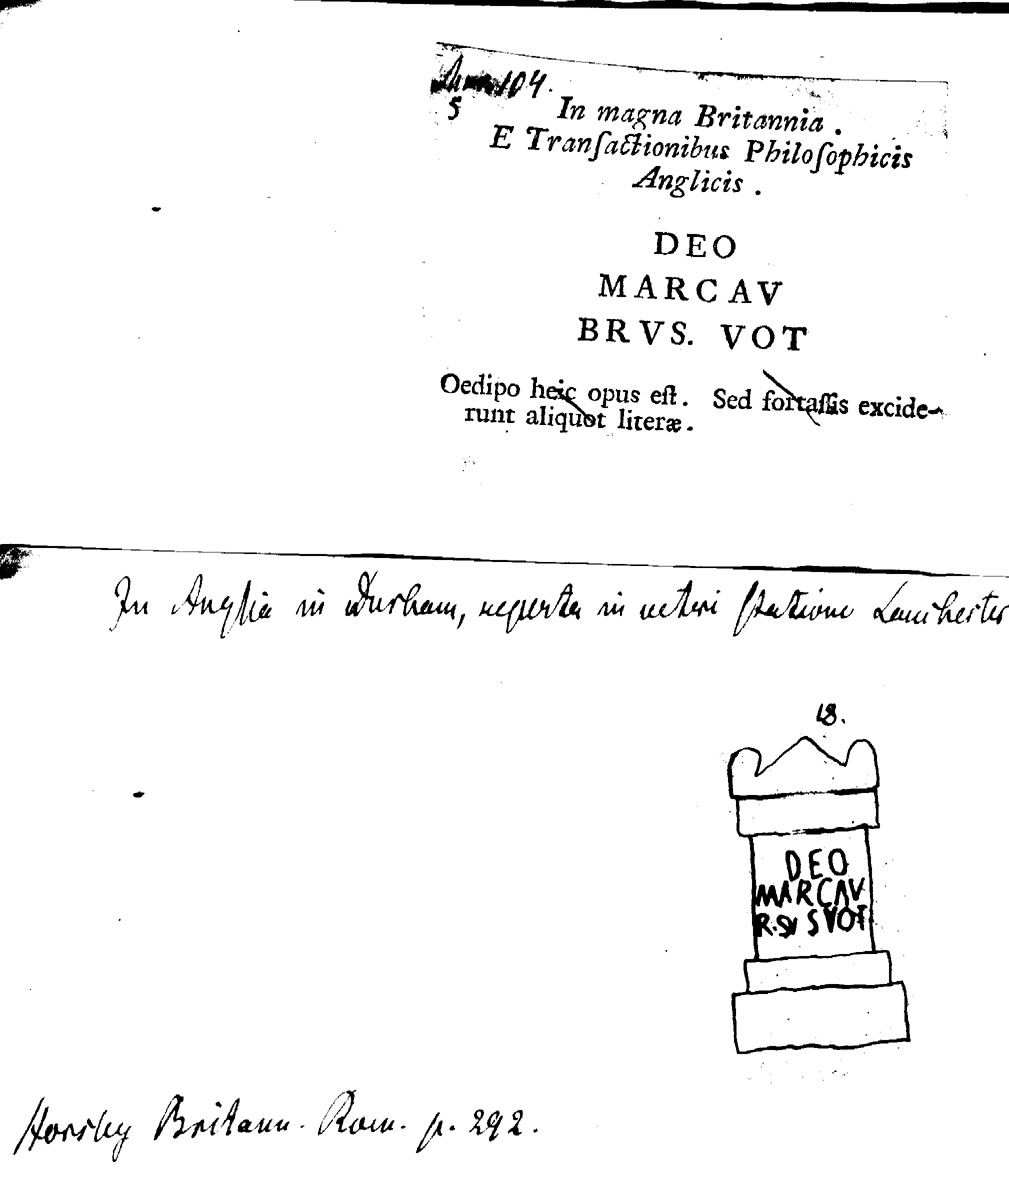 104.
5
In magna Britannia .
E Tranſactionibus Philoſophicis
Anglicis .
DEO
MARCAV
BRVS. VOT
Oedipo heic opus eſt. Sed fortaſſis excide-
runt aliquot literæ.
In Anglia in Durham, reperta in veteri ſtatione Lanchester
18.
DEO
MARCAV
R. SVOT
Horsley Britann. Rom. p. 292.